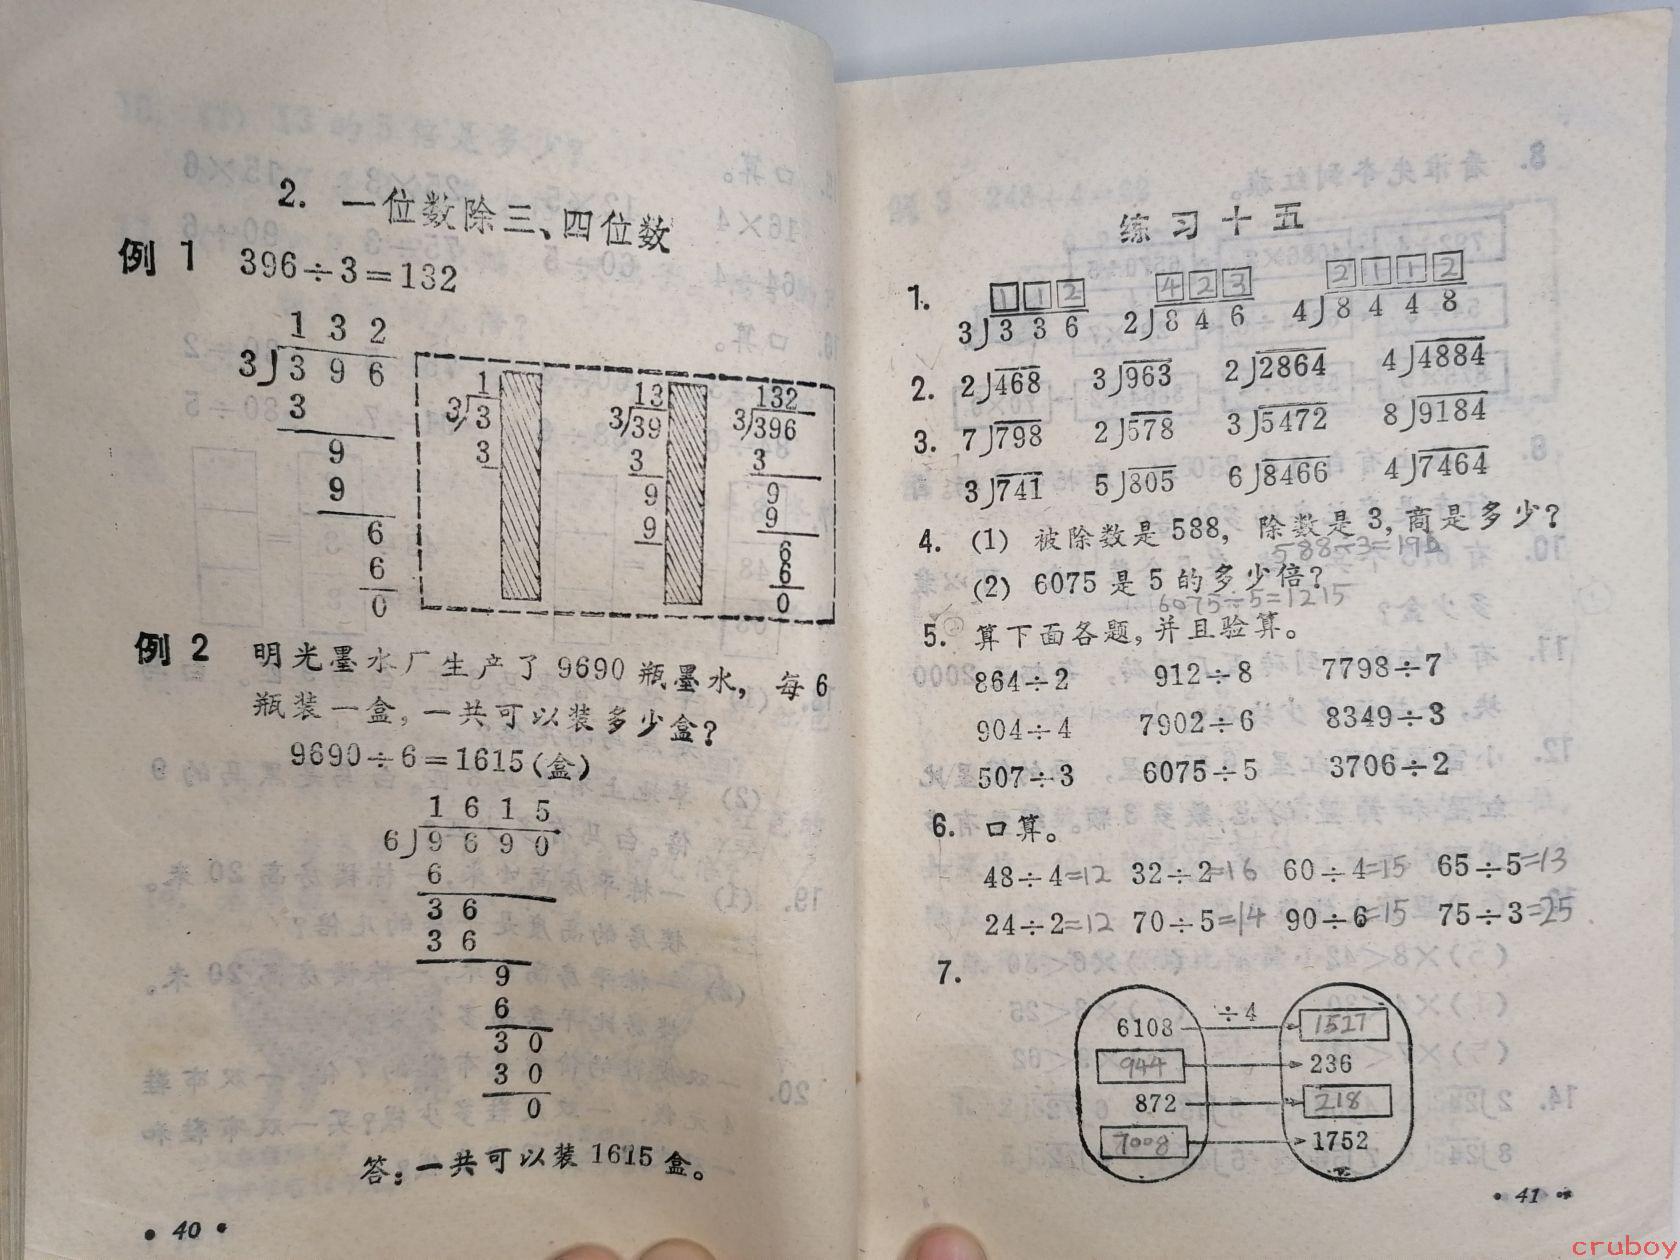 2. 一位数除三、四位数
例 1 396÷3=132
1 3 2
3 3 9 6
3
9
9
6
6
0
1
3 3
3
13
3 39
3
9
9
132
3 396
3
9
9
6
6
0
例 2 明光墨水厂生产了9690瓶墨水，每6
瓶装一盒，一共可以装多少盒？
9690÷6=1615(盒)
1 6 1 5
6 9 6 9 0
6
3 6
3 6
9
6
3 0
3 0
0
答：一共可以装1615盒。
• 40 •
练习十五
1. 1 1 2 4 2 3 2 1 1 2
3 3 3 6 2 8 4 6 4 8 4 4 8
2. 2 468 3 963 2 2864 4 4884
3. 7 798 2 578 3 5472 8 9184
3 741 5 805 6 8466 4 7464
4. (1) 被除数是588，除数是3，商是多少？
588÷3=196
(2) 6075是5的多少倍？
6075÷5=1215
5. 算下面各题，并且验算。
864÷2 912÷8 7798÷7
904÷4 7902÷6 8349÷3
507÷3 6075÷5 3706÷2
6. 口算。
48÷4=12 32÷2=16 60÷4=15 65÷5=13
24÷2=12 70÷5=14 90÷6=15 75÷3=25
7.
÷4
6108 1527
944 236
872 218
7008 1752
• 41 •
cruboy